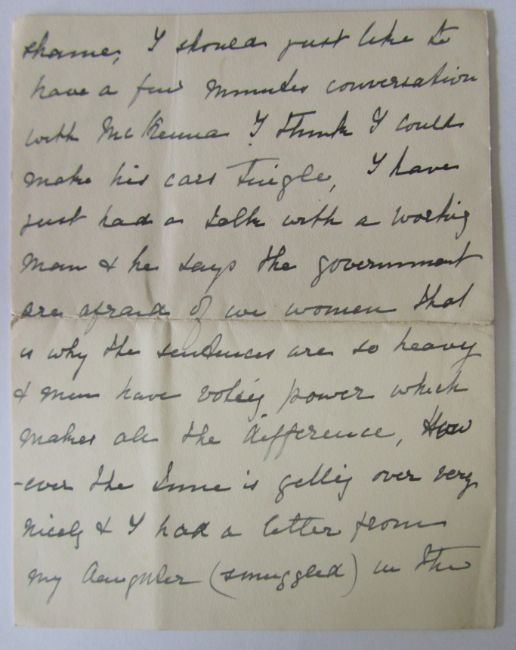 shame, I should just like to
have a few minutes conversation
with McKenna I think I could
make his ears tingle, I have
just had a talk with a working
man & he says the government
are afraid of we women that
is why the sentences are so heavy
& men have voting power which
makes all the difference, How
-ever the time is getting over very
nicely & I had a letter from
my daughter (smuggled) in the